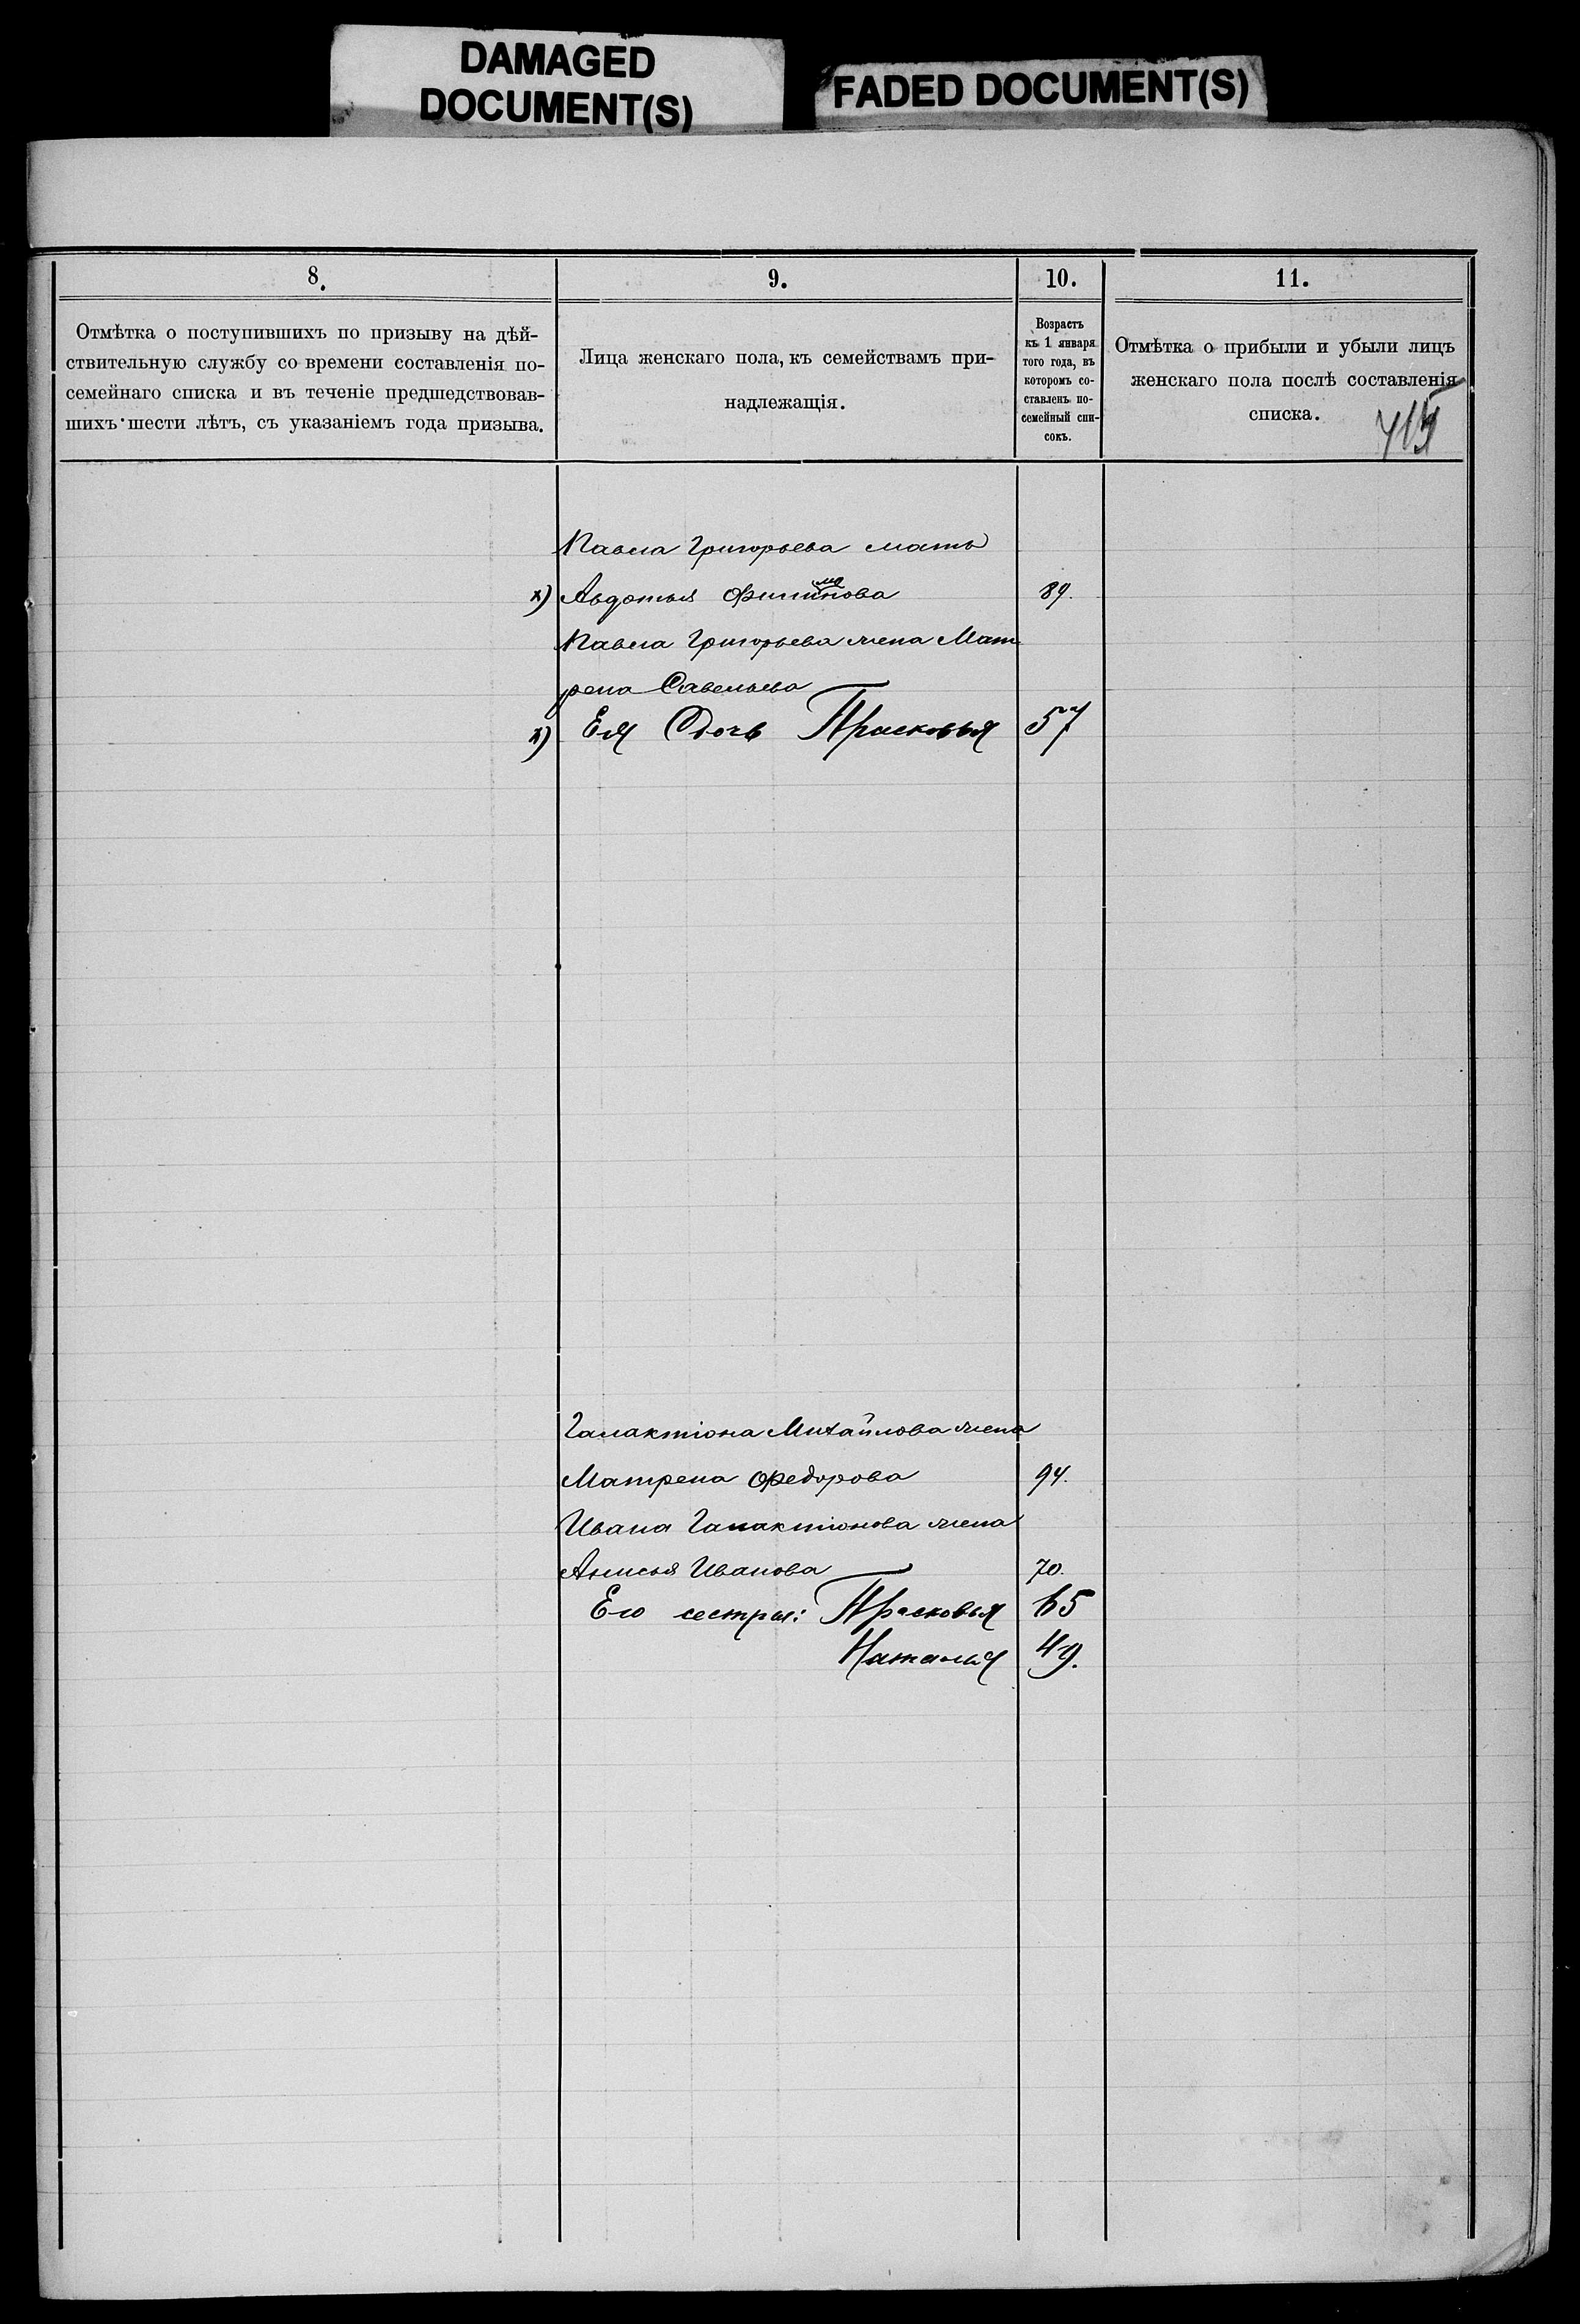 DAMAGED
DOCUMENT(S)
FADED DOCUMENT(S)
8.
9.
10.
11.
Отмѣтка о поступившихъ по призыву на дѣй-
ствительную службу со времени составленія по-
семейнаго списка и въ теченіе предшедствовав-
шихъ шести лѣтъ, съ указаніемъ года призыва.
Лица женскаго пола, къ семействамъ при-
надлежащія.
Возрастъ
къ 1 января
того года, въ
которомъ со-
ставленъ по-
семейный спи-
сокъ.
Отмѣтка о прибыли и убыли лицъ
женскаго пола послѣ составленія
списка.
Павла Григорьева мать
х) Авдотья 89.
Павла Григорьева жена Мат
рена Савельева
х) Ея Дочь Прасковья 57
Галактіона Михайлова жена
Матрена Федорова 94.
Ивана Галактіонова жена
Анисья Иванова 70.
Его сестры: Прасковья 65
Наталья 49.